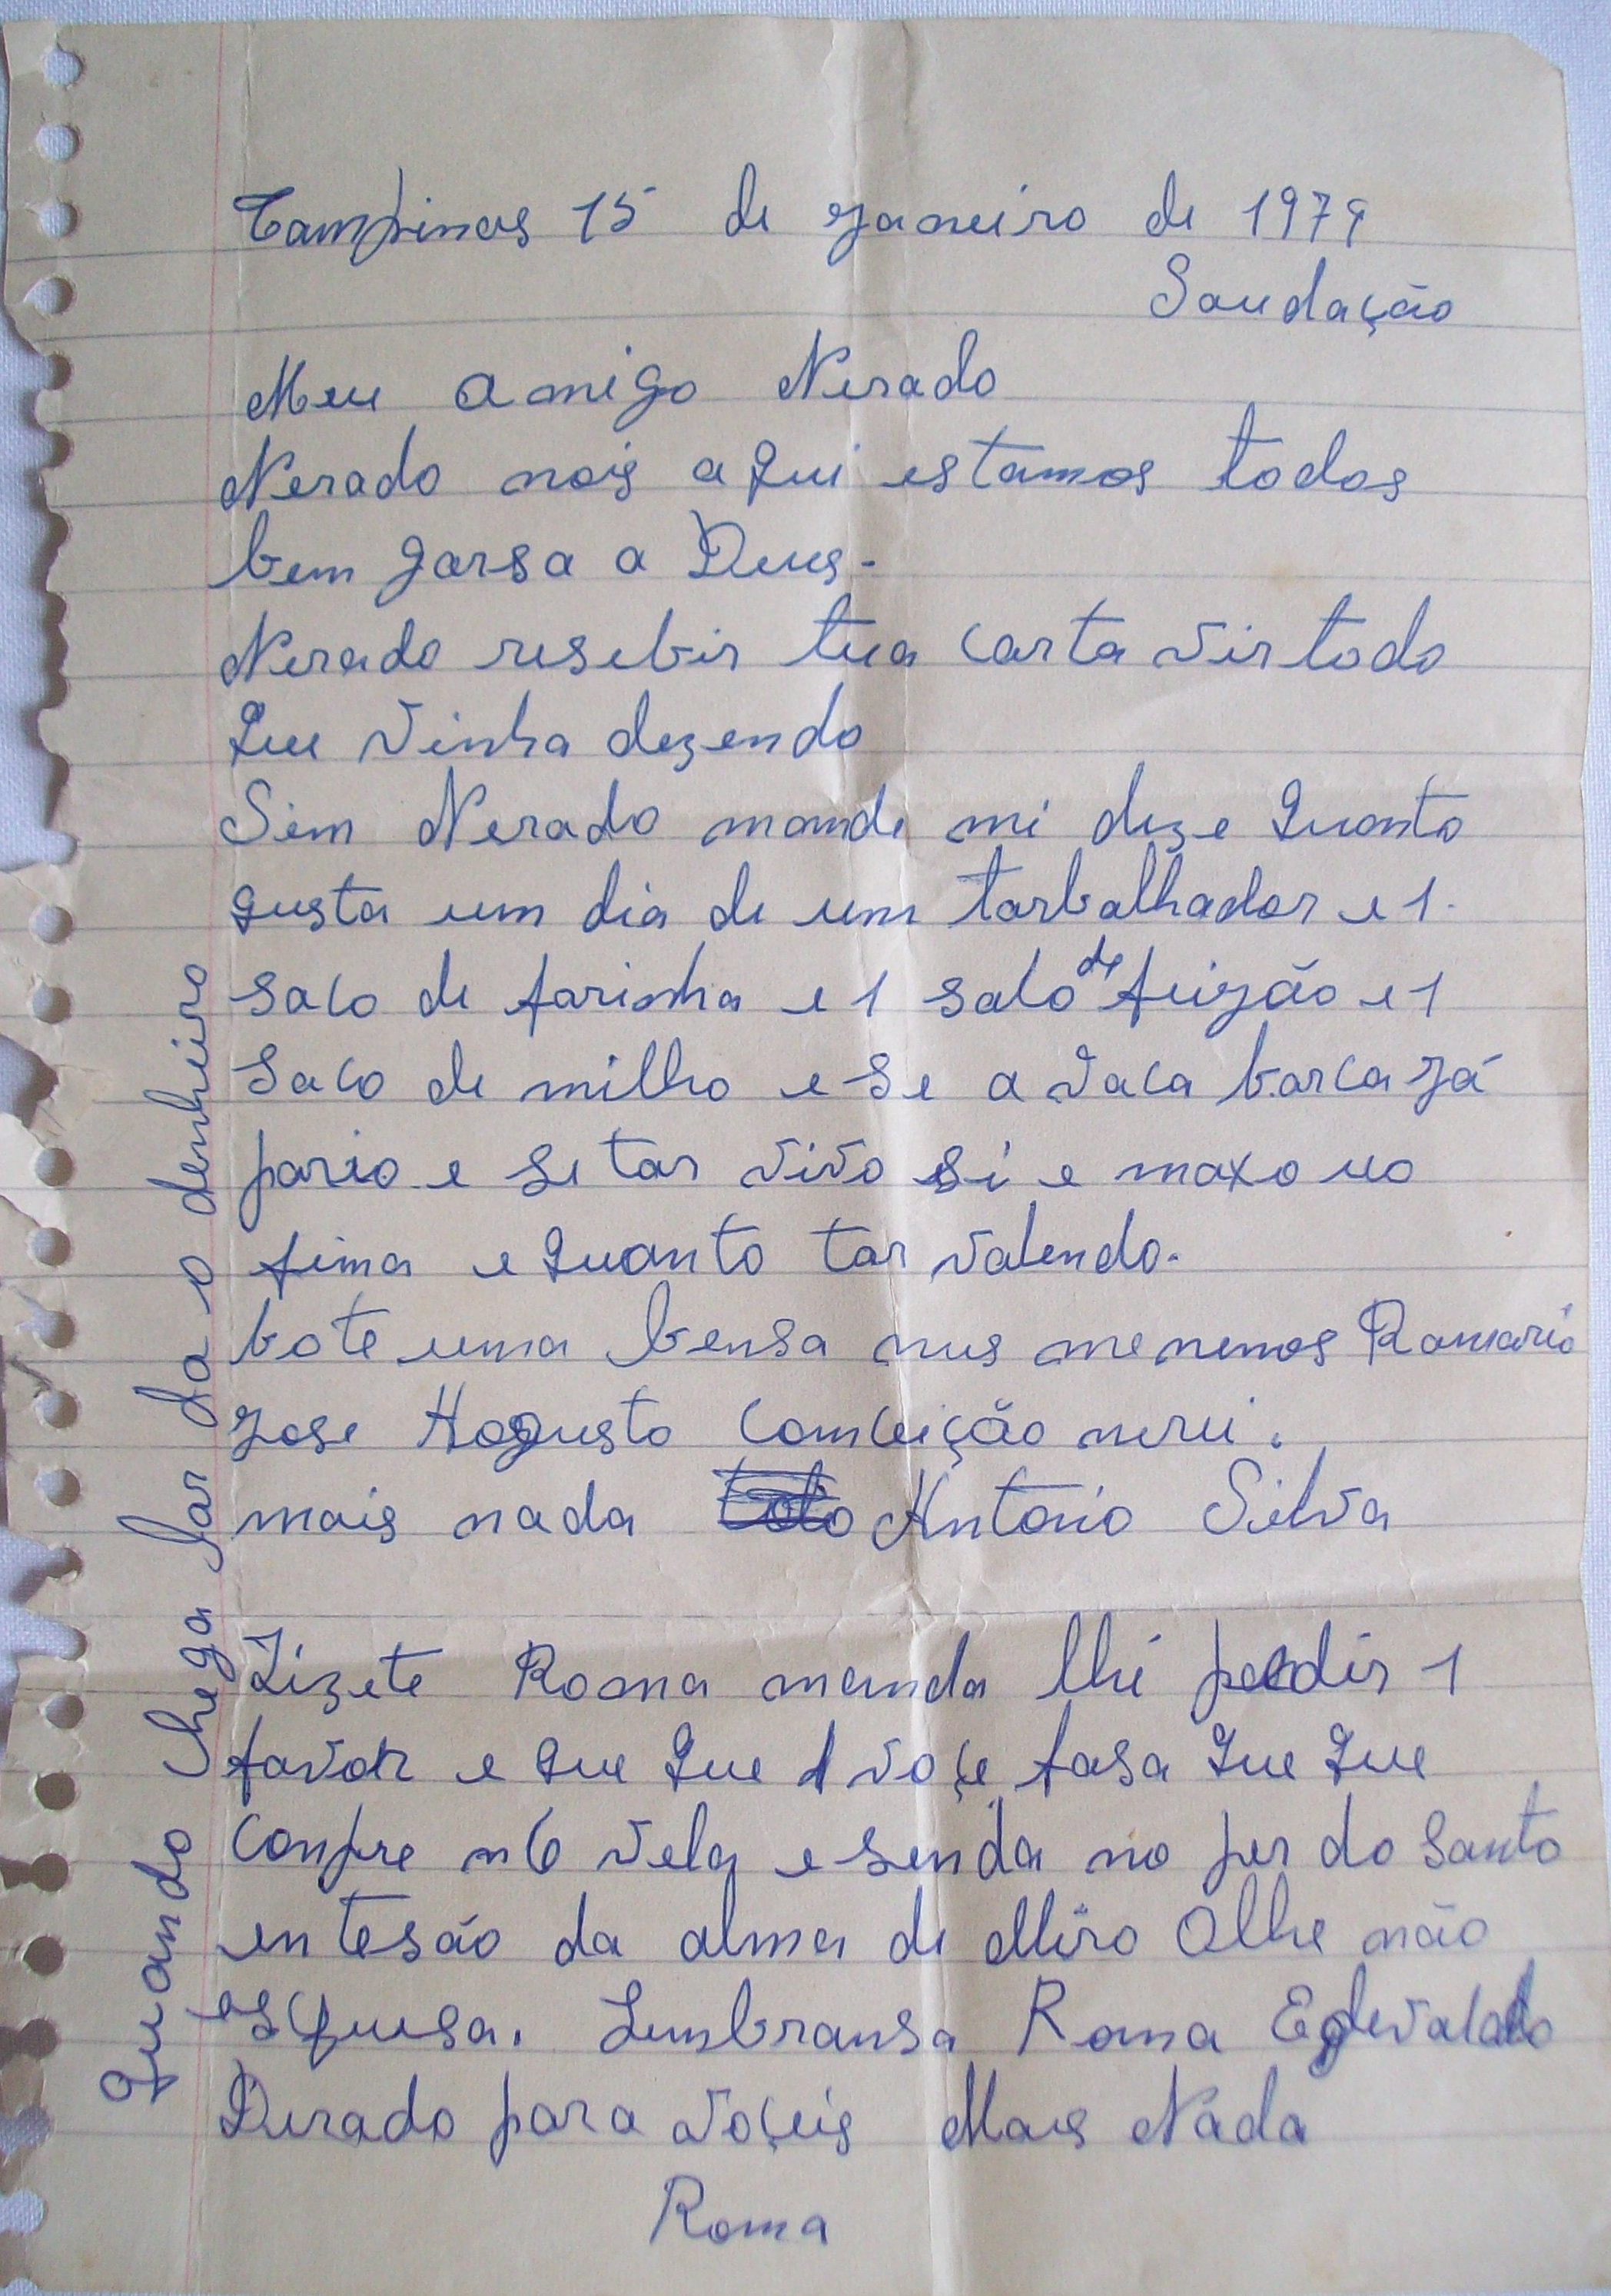 Campinas 15 de janeiro de 1979
Saudação
Meu amigo Nerado
Nerado nois aqui estamos todos
bem garsa a Deus.
Nerado resebir tua carta vir todo
Que vinha dezendo
Sim Nerado mande mi dize Quanto
gusta um dia de um tarbalhador e 1.
saco de farinha e 1 saco de feijão e 1
saco de milho e se a vaca barca já
pario e se tar vivo si e maxo uo
fima e Quanto tar valendo.
bote uma bensa nus menemos Romario
jose Hogusto Comceição nerei.
mais nada Antonio Silva
Lizete Roma manda lhi pedir 1
favor e Que Que voçe fasa Que Que
conpre n 6 vela e senda no per do santo
entesão da alma de Miro Olhe não
esquesa. Lembransa Roma Edevaldo
Durado para voçeis Mais Nada
Roma
Quando chega lar da o denheiro